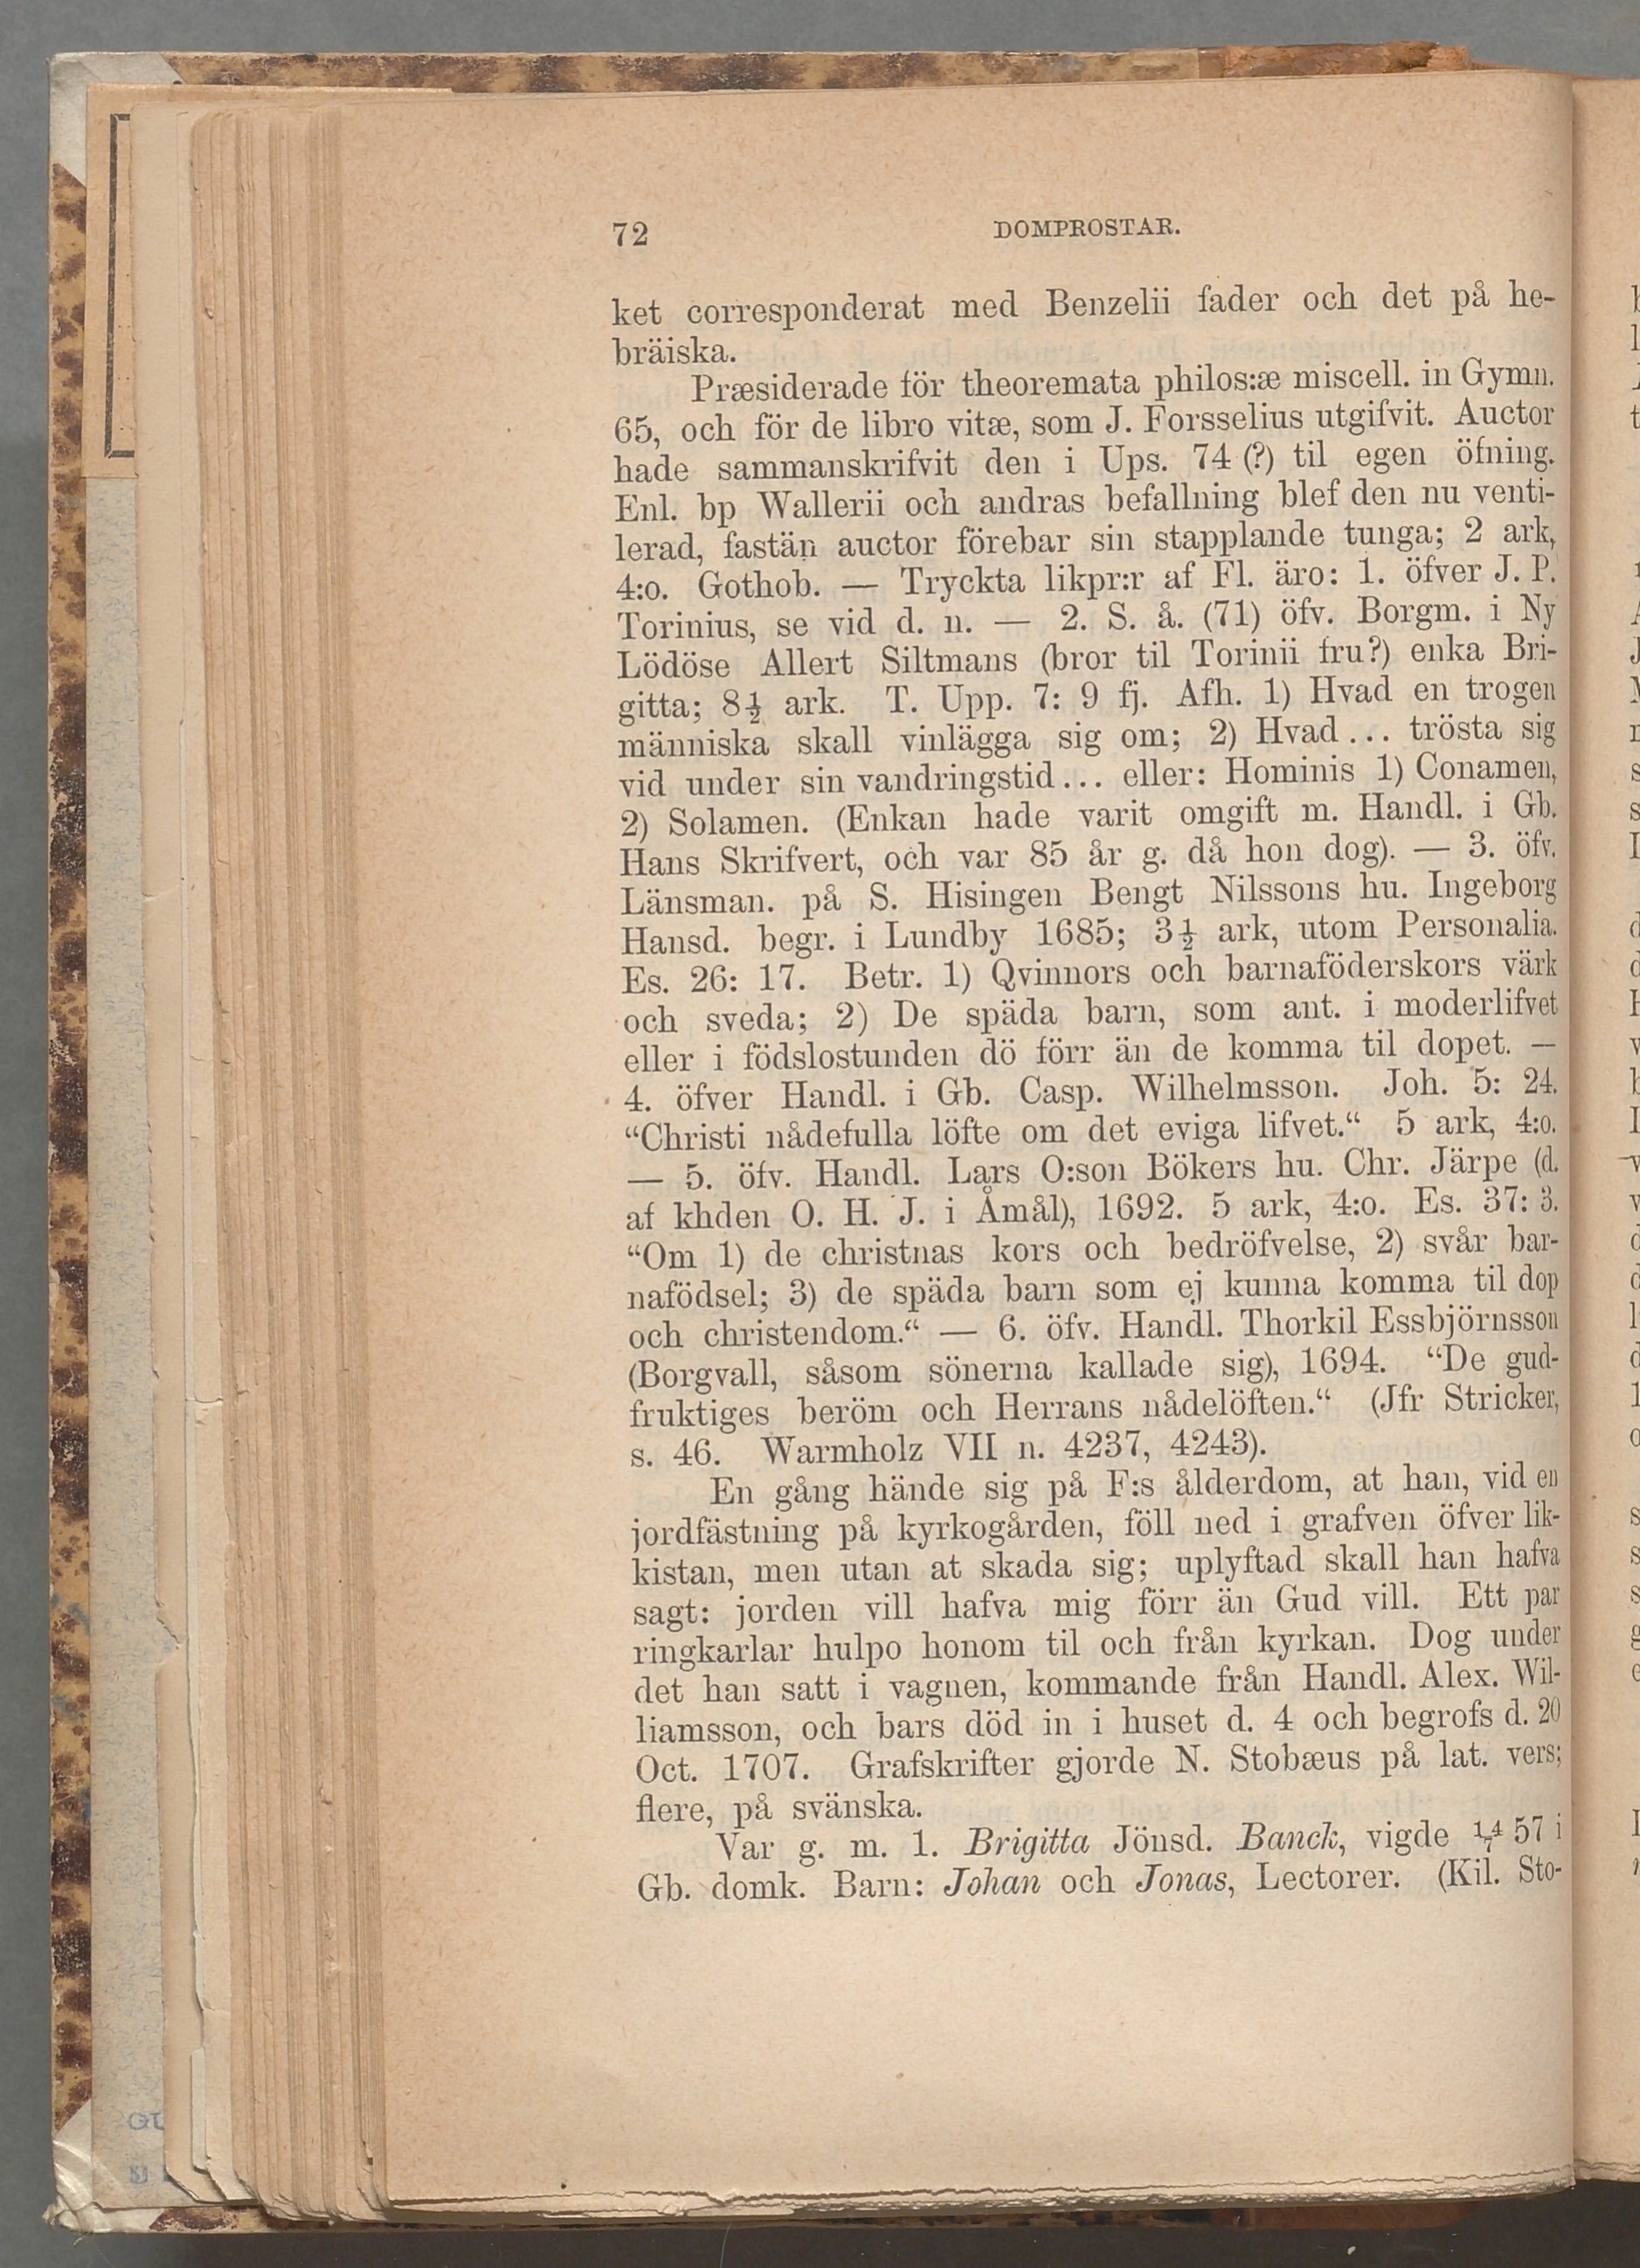 72 DOMPROSTAR.
ket corresponderat med Benzelii fader och det på he-
bräiska.
Præsiderade för theoremata philos:æ miscell. in Gymn.
65, och för de libro vitæ, som J. Forsselius utgifvit. Auctor
hade sammanskrifvit den i Ups. 74 (?) til egen öfning.
Enl. bp Wallerii och andras befallning blef den nu venti-
lerad, fastän auctor förebar sin stapplande tunga; 2 ark,
4:o. Gothob. — Tryckta likpr:r af Fl. äro: 1. öfver J. P.
Torinius, se vid d. n. — 2. S. å. (71) öfv. Borgm. i Ny
Lödöse Allert Siltmans (bror til Torinii fru?) enka Bri-
gitta; 8½ ark. T. Upp. 7: 9 fj. Afh. 1) Hvad en trogen
människa skall vinlägga sig om; 2) Hvad... trösta sig
vid under sin vandringstid... eller: Hominis 1) Conamen,
2) Solamen. (Enkan hade varit omgift m. Handl. i Gb.
Hans Skrifvert, och var 85 år g. då hon dog). — 3. öfv.
Länsman. på S. Hisingen Bengt Nilssons hu. Ingeborg
Hansd. begr. i Lundby 1685; 3½ ark, utom Personalia.
Es. 26: 17. Betr. 1) Qvinnors och barnaföderskors värk
och sveda; 2) De späda barn, som ant. i moderlifvet
eller i födslostunden dö förr än de komma til dopet. —
4. öfver Handl. i Gb. Casp. Wilhelmsson. Joh. 5: 24.
“Christi nådefulla löfte om det eviga lifvet.“ 5 ark, 4:o.
— 5. öfv. Handl. Lars O:son Bökers hu. Chr. Järpe (d.
af khden O. H. J. i Åmål), 1692. 5 ark, 4:o. Es. 37: 3.
“Om 1) de christnas kors och bedröfvelse, 2) svår bar-
nafödsel; 3) de späda barn som ej kunna komma til dop
och christendom.“ — 6. öfv. Handl. Thorkil Essbjörnsson
(Borgvall, såsom sönerna kallade sig), 1694. “De gud-
fruktiges beröm och Herrans nådelöften.“ (Jfr Stricker,
s. 46. Warmholz VII n. 4237, 4243).
En gång hände sig på F:s ålderdom, at han, vid en
jordfästning på kyrkogården, föll ned i grafven öfver lik-
kistan, men utan at skada sig; uplyftad skall han hafva
sagt: jorden vill hafva mig förr än Gud vill. Ett par
ringkarlar hulpo honom til och från kyrkan. Dog under
det han satt i vagnen, kommande från Handl. Alex. Wil-
liamsson, och bars död in i huset d. 4 och begrofs d. 20
Oct. 1707. Grafskrifter gjorde N. Stobæus på lat. vers;
flere, på svänska.
Var g. m. 1. Brigitta Jönsd. Banck, vigde 14/7 57 i
Gb. domk. Barn: Johan och Jonas, Lectorer. (Kil. Sto-